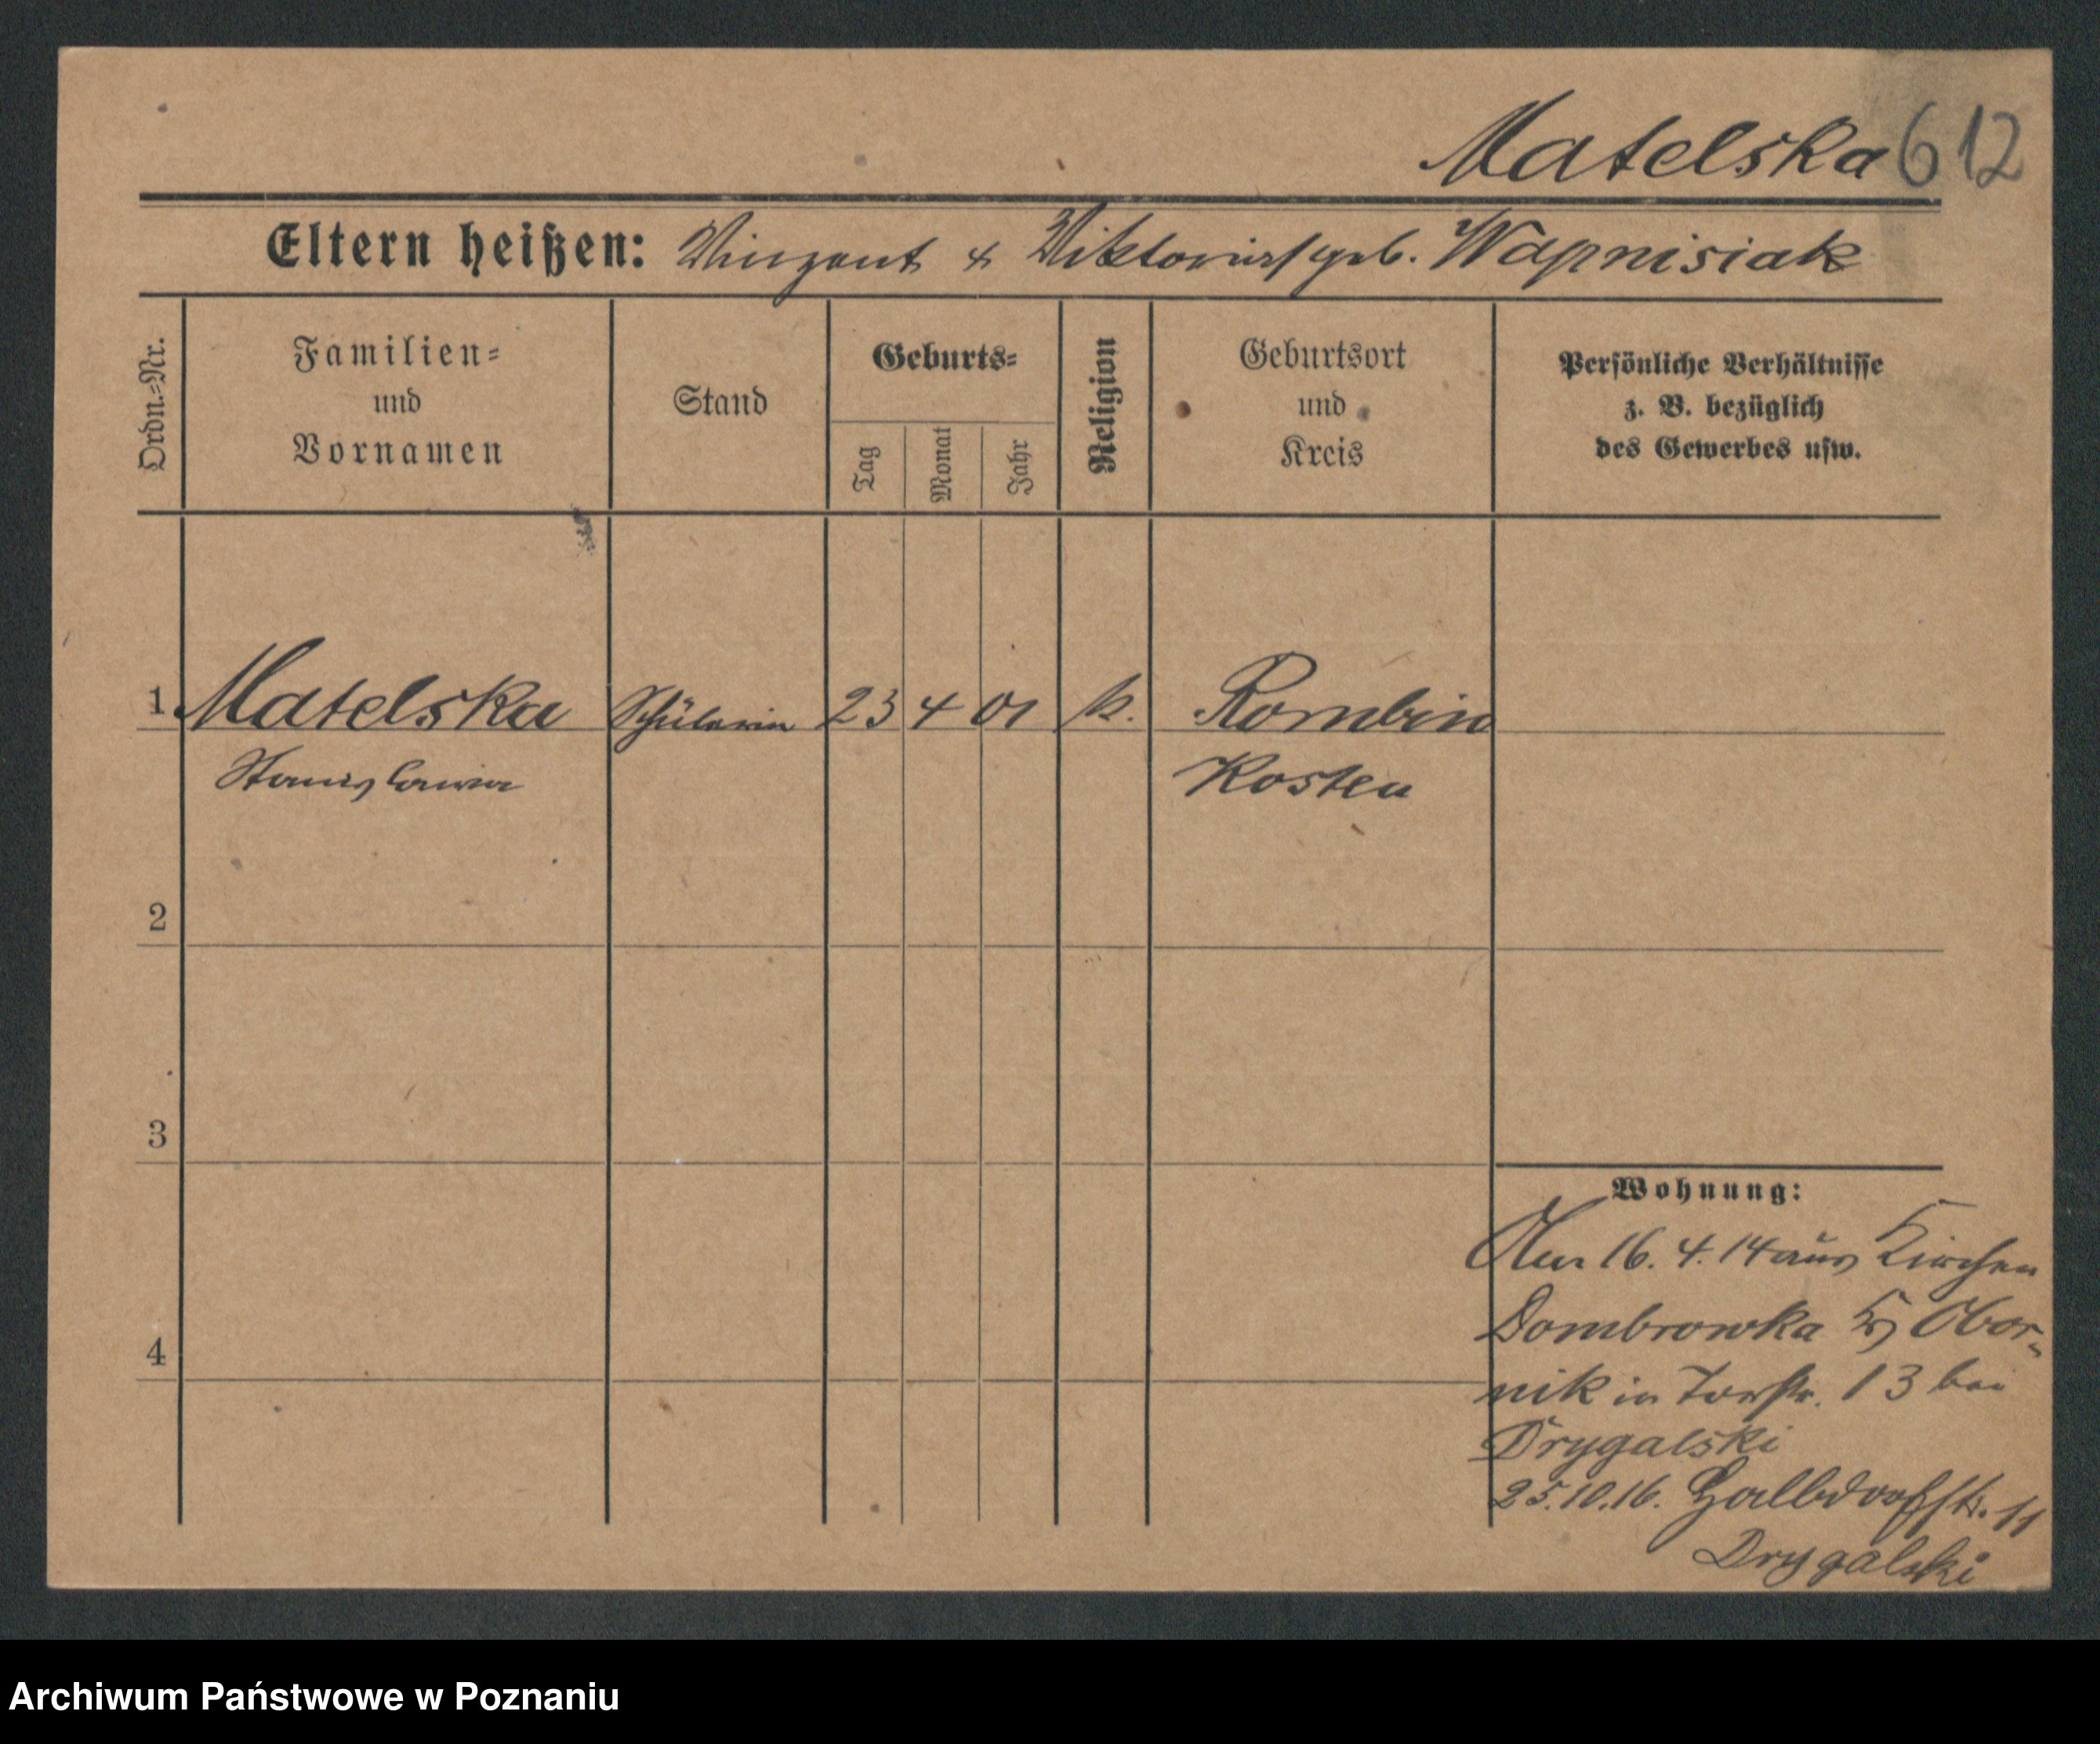 Matelska 612
Eltern heißen: Vinzent & Viktoria geb. Wapnisiak
Ordn.-Nr.
Familien-
und
Vornamen
Stand
Geburts-
Tag
Monat
Jahr
Religion
Geburtsort
und
Kreis
Persönliche Verhältnisse
z. B. bezüglich
des Gewerbes usw.
1 Matelska Schülerin 23 4 01 k. Rombin
Stanislawa Kosten
2
3
4
Wohnung:
Am 16. 4. 14 aus Kirchen
Dombrowka Kr Obor-
nik in Torstr. 13 bei
Drygalski
25.10.16. Halbdorfstr. 11
Drygalski
Archiwum Państwowe w Poznaniu